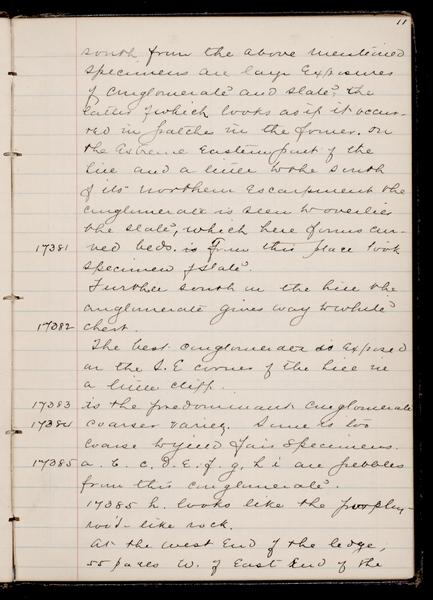 11
south from the above mentioned
specimens are large exposures
of conglomerate and slate, the
latter of which looks as if it occur-
red in patches in the former. On
the extreme eastern part of the
hill and a little to the south
of its northern escarpment the
conglomerate is seen to overlie
the slate, which here forms cur-
17381 ved beds. is From this place took
specimen of slate.
Further south on the hill the
conglomerate gives way to white
17382 chert.
The best conglomerate is exposed
on the S. E corner of the hill in
a little cliff.
17383 is the predominant conglomerate
17384 coarser variety. Some is too
coarse to yield fair specimens.
17385 a. b. c. d. E. f. g. h i are pebbles
from this conglomerate.
17385 h. looks like the porphy-
roid-like rock.
At the west end of the ledge,
55 paces W. of East End of the